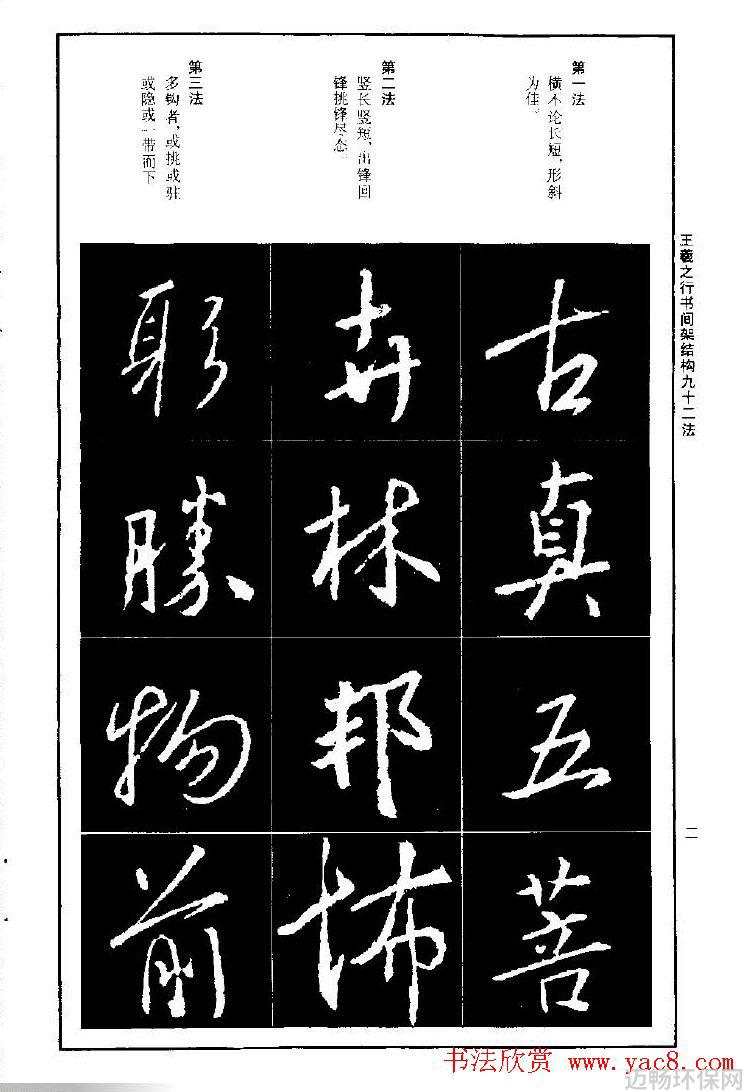 王羲之行书间架结构九十二法
二
第一法
横不论长短,形斜
为佳。
古
真
五
菩
第二法
竖长竖短,出锋回
锋挑锋尽态。
卉
林
邦
怖
第三法
多钩者,或挑或驻
或隐或一带而下
勝
物
前
书法欣赏 www.yac8.com
迈畅环保网